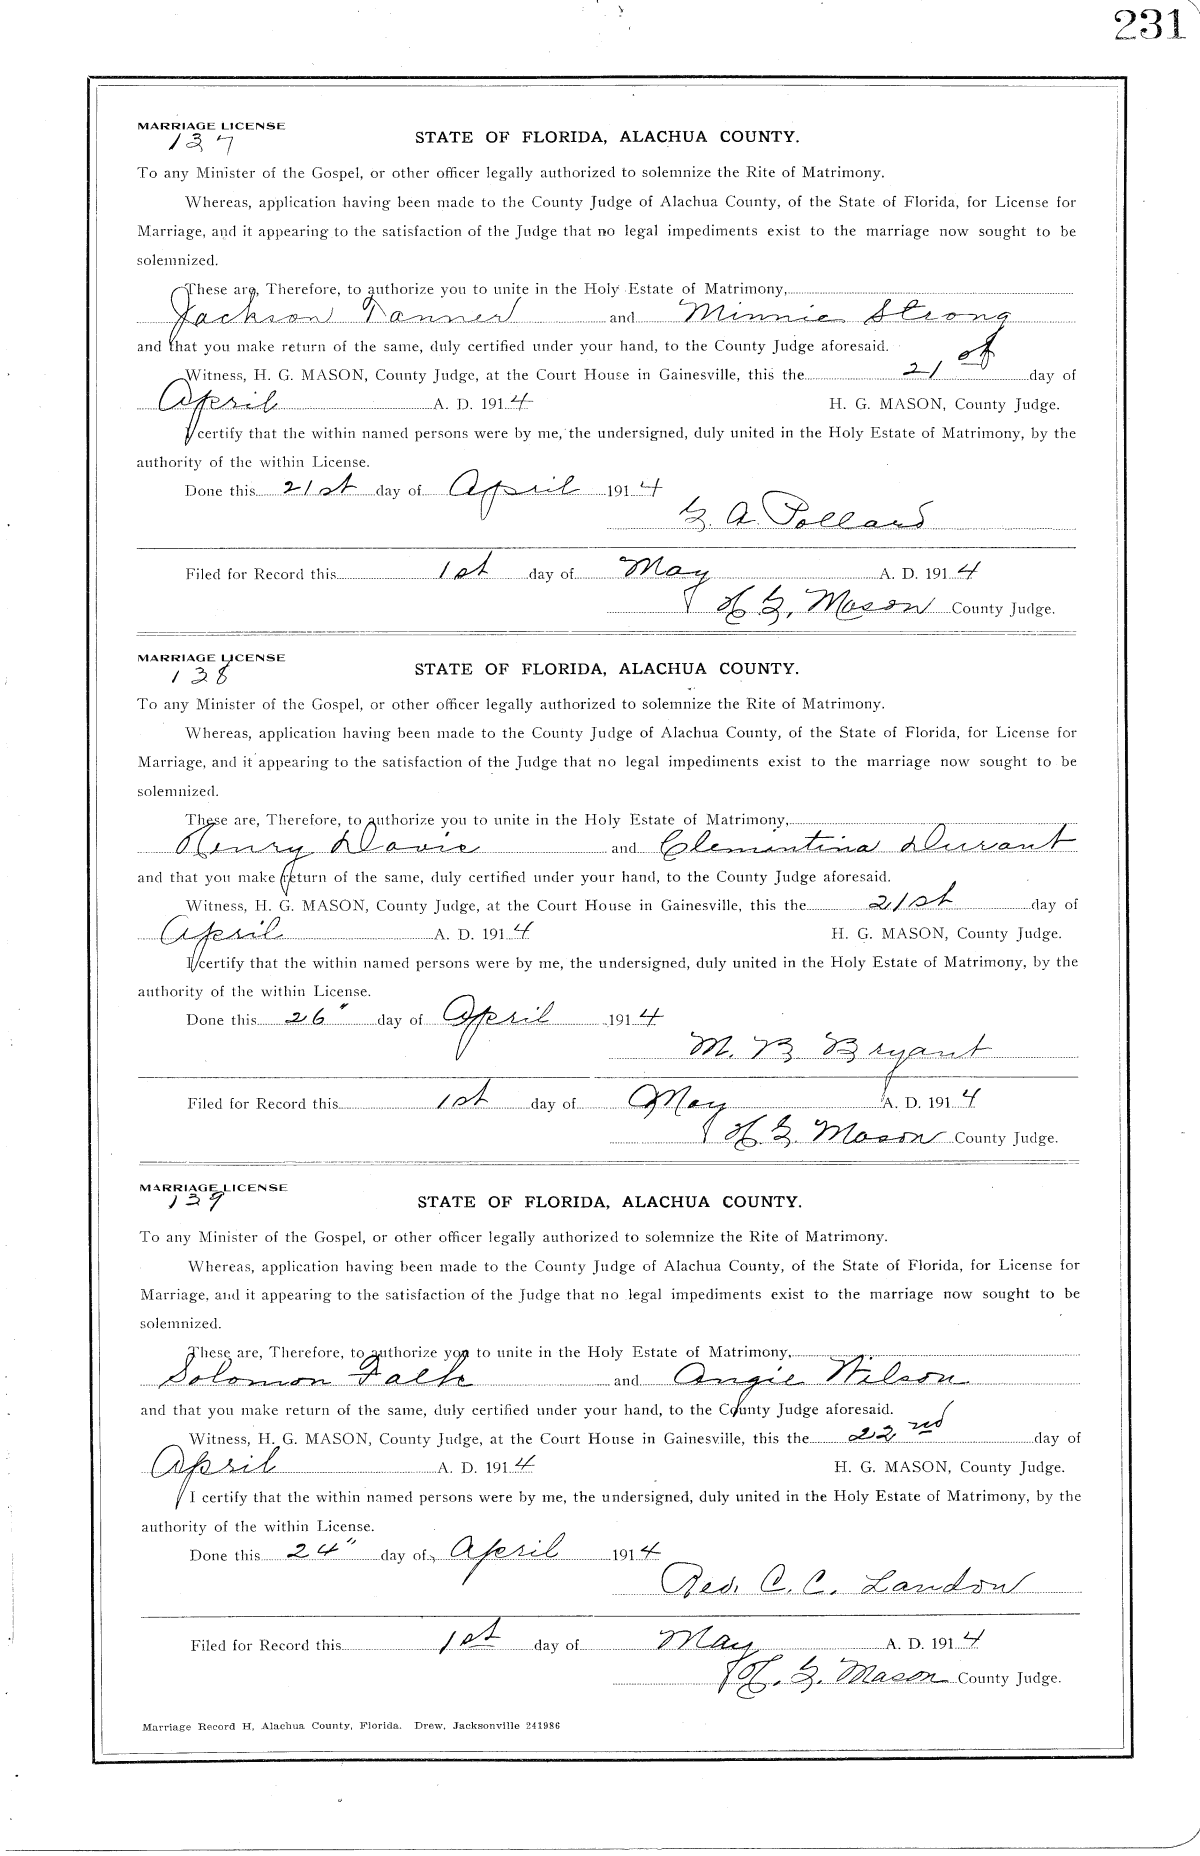 231
MARRIAGE LICENSE
137
STATE OF FLORIDA, ALACHUA COUNTY.
To any Minister of the Gospel, or other officer legally authorized to solemnize the Rite of Matrimony.
Whereas, application having been made to the County Judge of Alachua County, of the State of Florida, for License for
Marriage, and it appearing to the satisfaction of the Judge that no legal impediments exist to the marriage now sought to be
solemnized.
These are, Therefore, to authorize you to unite in the Holy Estate of Matrimony,
Jackson Tanner and Minnie Strong
and that you make return of the same, duly certified under your hand, to the County Judge aforesaid.
Witness, H. G. MASON, County Judge, at the Court House in Gainesville, this the 21st day of
April A. D. 1914 H. G. MASON, County Judge.
I certify that the within named persons were by me, the undersigned, duly united in the Holy Estate of Matrimony, by the
authority of the within License.
Done this 21st day of April 1914
G. A. Pollard
Filed for Record this 1st day of May A. D. 1914
H. G. Mason County Judge.
MARRIAGE LICENSE
138
STATE OF FLORIDA, ALACHUA COUNTY.
To any Minister of the Gospel, or other officer legally authorized to solemnize the Rite of Matrimony.
Whereas, application having been made to the County Judge of Alachua County, of the State of Florida, for License for
Marriage, and it appearing to the satisfaction of the Judge that no legal impediments exist to the marriage now sought to be
solemnized.
These are, Therefore, to authorize you to unite in the Holy Estate of Matrimony,
Henry Davis and Clemintina Durant
and that you make return of the same, duly certified under your hand, to the County Judge aforesaid.
Witness, H. G. MASON, County Judge, at the Court House in Gainesville, this the 21st day of
April A. D. 1914 H. G. MASON, County Judge.
I certify that the within named persons were by me, the undersigned, duly united in the Holy Estate of Matrimony, by the
authority of the within License.
Done this 26" day of April 1914
M. B. Bryant
Filed for Record this 1st day of May A. D. 1914
H. G. Mason County Judge.
MARRIAGE LICENSE
139
STATE OF FLORIDA, ALACHUA COUNTY.
To any Minister of the Gospel, or other officer legally authorized to solemnize the Rite of Matrimony.
Whereas, application having been made to the County Judge of Alachua County, of the State of Florida, for License for
Marriage, and it appearing to the satisfaction of the Judge that no legal impediments exist to the marriage now sought to be
solemnized.
These are, Therefore, to authorize you to unite in the Holy Estate of Matrimony,
Solomon Falk and Angie Wilson
and that you make return of the same, duly certified under your hand, to the County Judge aforesaid.
Witness, H. G. MASON, County Judge, at the Court House in Gainesville, this the 22nd day of
April A. D. 1914 H. G. MASON, County Judge.
I certify that the within named persons were by me, the undersigned, duly united in the Holy Estate of Matrimony, by the
authority of the within License.
Done this 24" day of April 1914
Rev. C. C. Landon
Filed for Record this 1st day of May A. D. 1914
H. G. Mason County Judge.
Marriage Record H, Alachua County, Florida. Drew, Jacksonville 241986